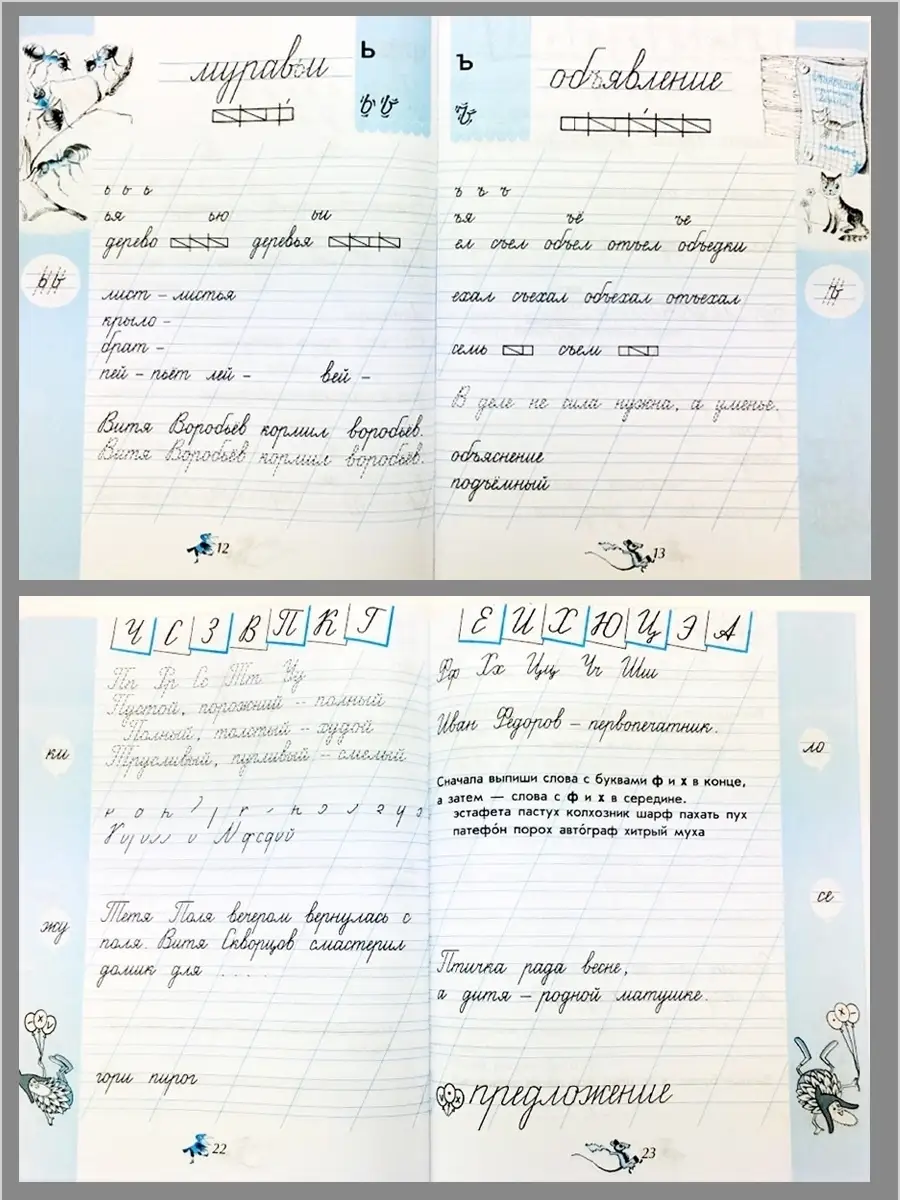 муравьи
ь
ь ь
ь ь ь
ья ью ьи
дерево деревья
лист – листья
крыло –
брат –
пей – пьёт лей – вей –
Витя Воробьёв кормил воробьёв.
Витя Воробьёв кормил воробьёв.
12
ъ
объявление
ъ
ъ ъ ъ
ъя ъё ъе
ел съел объел отъел объедки
ехал съехал объехал отъехал
семь съем
В деле не сила нужна, а уменье.
объяснение
подъёмный
13
Ч С З В П К Г
Пп Рр Сс Тт Уу
Пустой, порожний – полный
Полный, толстый – худой
Трусливый, пугливый – смелый
ки
Тётя Поля вечером вернулась с
поля. Витя Скворцов смастерил
домик для ....
жу
гори пирог
22
Е И Х Ю Ц Э А
Фф Хх Цц Чч Шш
Иван Фёдоров – первопечатник.
ло
Сначала выпиши слова с буквами ф и х в конце,
а затем — слова с ф и х в середине.
эстафета пастух колхозник шарф пахать пух
патефо́н порох авто́граф хитрый муха
се
Птичка рада весне,
а дитя – родной матушке.
предложение
23